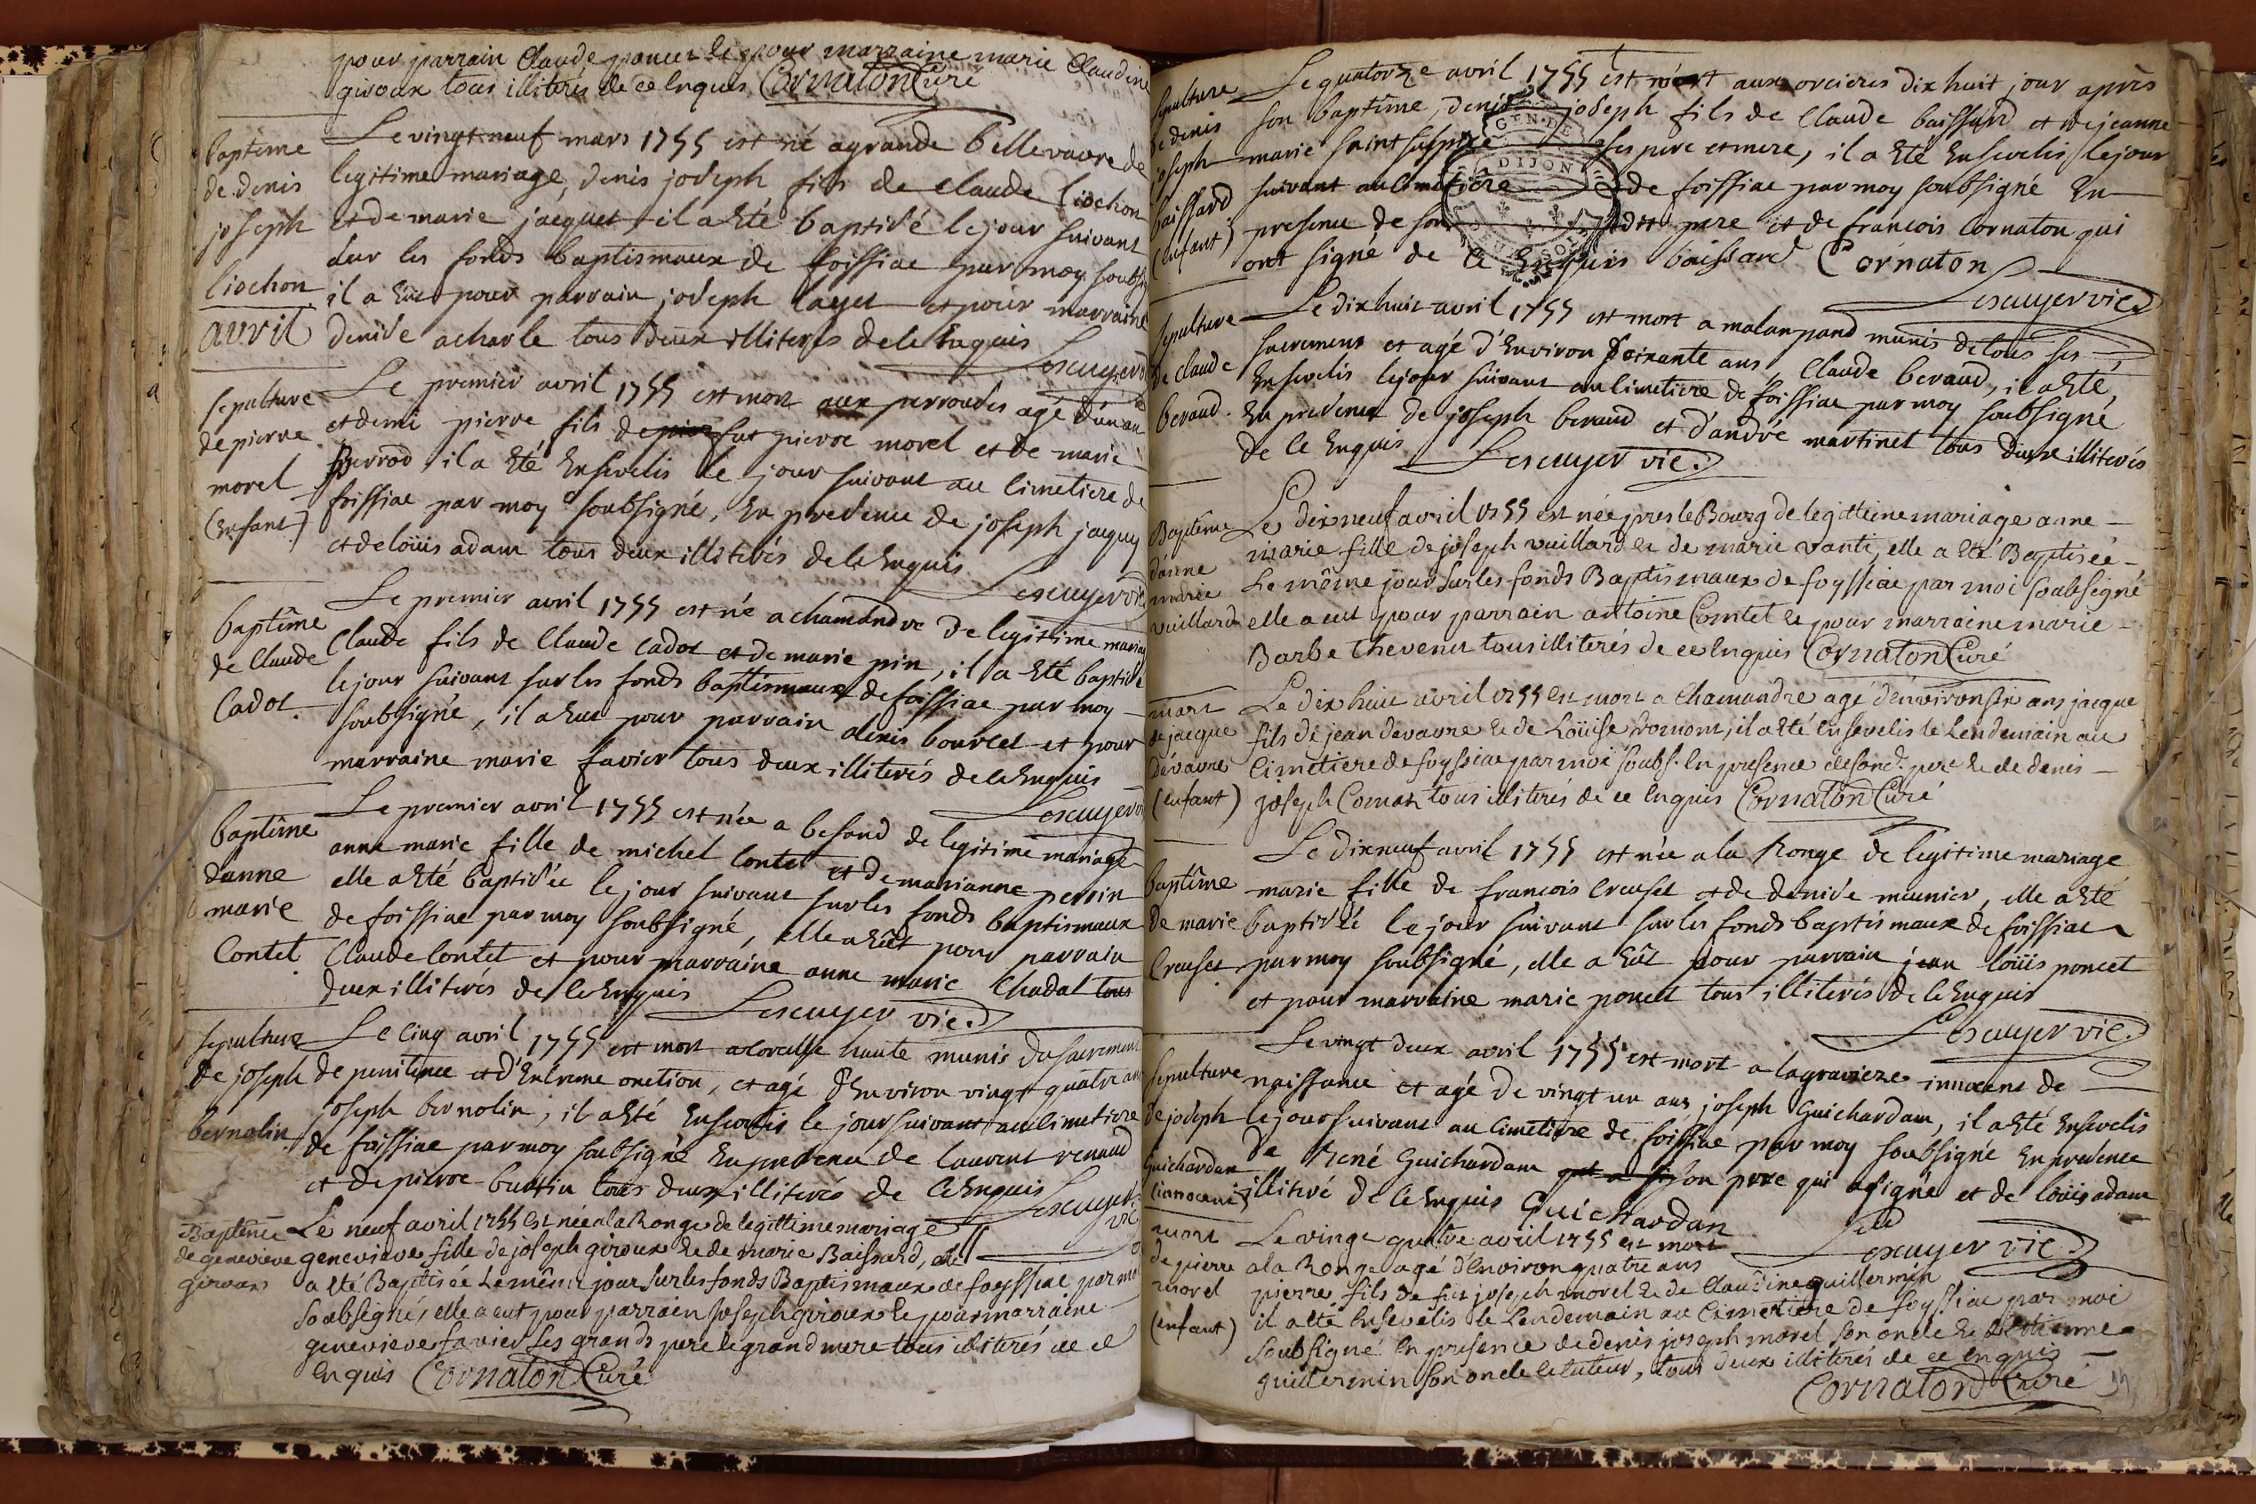 pour parrain Claude poncet et pour marraine marie Claudine
giroux tous illiterés de ce Enquis Cornaton Curé
baptême
de denis
joseph
liochon
Le vingt neuf mars 1755 est né a grande bellevavre de
legitime mariage, denis joseph fils de Claude liochon
et de marie jacquet, il a Eté baptisé le jour suivant
sur les fonds baptismaux de foissiac par moy soubsi
il a Eut pour parrain joseph layet et pour marraine
denise acharle tous deux illiterés de ce Enquis
Lescuyer
avril
sepulture
de pierre
morel
(Enfant)
Le premier avril 1755 est mort aux perroudes agé d'un an
et demi pierre fils de feu pierre morel et de marie
perrod, il a Eté Ensevelis le jour suivant au cimetiere de
foissiac par moy soubsigné, En presence de joseph jacquy
et de loüis adam tous deux illiterés de ce Enquis
Lescuyer vic
baptême
de Claude
Cadot
Le premier avril 1755 est né a chamandre de legitime mariage
Claude fils de Claude Cadot et de marie pin, il a Eté baptisé
le jour suivant sur les fonds baptismaux de foissiac par moy
soubsigné, il a Eut pour parrain alexis bourcet et pour
marraine marie favier tous deux illiterés de ce Enquis
Lescuyer
baptême
d'anne
marie
Contet
Le premier avril 1755 est née a befand de legitime mariage
anne marie fille de michel Contet et de marianne perrin
elle a Eté baptisée le jour suivant sur les fonds baptismaux
de foissiac par moy soubsigné, elle a Eût pour parrain
Claude Contet et pour marraine anne marie Chadal tous
deux illiterés de ce Enquis Lescuyer vic.
sepulture
de joseph
bernolin
Le Cinq avril 1755 est mort a Corcelle haute munis du sacrement
de penitence et d'Extreme onction, et agé d'Environ vingt quatre ans
joseph bernolin, il a Eté Ensevelis le jour suivant au cimetiere
de foissiac par moy soubsigné En presence de laurent renaud
et de pierre burtin tous deux illiterés de ce Enquis
Lescuyer vic
Baptême
de genevieve
giroux
Le neuf avril 1755 est née a la Ronge de legittime mariage
genevieve fille de joseph giroux et de marie Baissard, elle
a Eté Baptisée le même jour sur les fonds Baptismaux de foyssiac par moi
soubsigné, elle a eut pour parrain joseph giroux et pour marraine
genevieve favier ses grands pere et grand mere tous illiterés de ce
Enquis Cornaton Curé
sepulture
de denis
joseph
baissard
(Enfant)
Le quatorze avril 1755 est mort aux orcieres dix huit jour après
son baptême, denis joseph fils de Claude baissard et de jeanne
marie saint sulpice ses pere et mere, il a Eté Ensevelis le jour
suivant au cimetiere de foissiac par moy soubsigné En
presence de son dit pere et de francois Cornaton qui
ont signé de ce Enquis baissard Cornaton
Lescuyer vic.
sepulture
de Claude
beraud.
Le dix huit avril 1755 est mort a malanpand munis de tous ses
sacrement et agé d'Environ soixante ans, Claude beraud, il a Eté
Ensevelis le jour suivant au cimetiere de foissiac par moy soubsigné
En presence de joseph beraud et d'andré martinet tous deux illiterés
de ce Enquis Lescuyer vic.
Baptême
d'anne
marie
vuillard
Le dix neuf avril 1755 est née pres le Bourg de legitteine mariage anne
marie fille de joseph vuillard et de marie vanti, elle a Eté Baptisée
Le même jour sur les fonds Baptismaux de foyssiac par moi soubsigné
elle a eut pour parrain antoine Comtet et pour marraine marie
Barbe thevenet tous illiterés de ce Enquis Cornaton Curé
mort
de jacque
devavre
(enfant)
Le dix huit avril 1755 est mort a Chamandre agé d'environ six ans jacque
fils de jean devavre et de Loüise romont, il a Eté Ensevelis le Lendemain au
Cimetiere de foyssiac par moi soubs. En presence de son d. pere et de denis
joseph Comas tous illiterés de ce Enquis Cornaton Curé
baptême
de marie
Creuset
Le dix neuf avril 1755 est née a la Ronge de legitime mariage
marie fille de francois Creuset et de denise meunier, elle a Eté
baptisée le jour suivant sur les fonds baptismaux de foissiac
par moy soubsigné, elle a Eût pour parrain jean loüis poncet
et pour marraine marie poncet tous illiterés de ce Enquis
Lescuyer vic.
sepulture
de joseph
Guichardan
(innocent)
Le vingt deux avril 1755 est mort a la graviere innocent de
naissance et agé de vingt un ans joseph Guichardan, il a Eté Ensevelis
le jour suivant au cimetiere de foissiac par moy soubsigné En presence
de René Guichardam son pere qui a signé et de loüis adam
illiteré de ce Enquis Guichardan
Lescuyer vic.
mort
de pierre
morel
(enfant)
Le vingt quatre avril 1755 est mort
a la Ronge agé d'environ quatre ans
pierre fils de feu joseph morel et de Claudine guillermin
il a eté Ensevelis le Lendemain au Cimetiere de foyssiac par moi
soubsigné En presence de denis joseph morel son oncle et d'etienne
guillermin son oncle et tuteur, tous deux illiterés de ce Enquis
Cornaton Curé